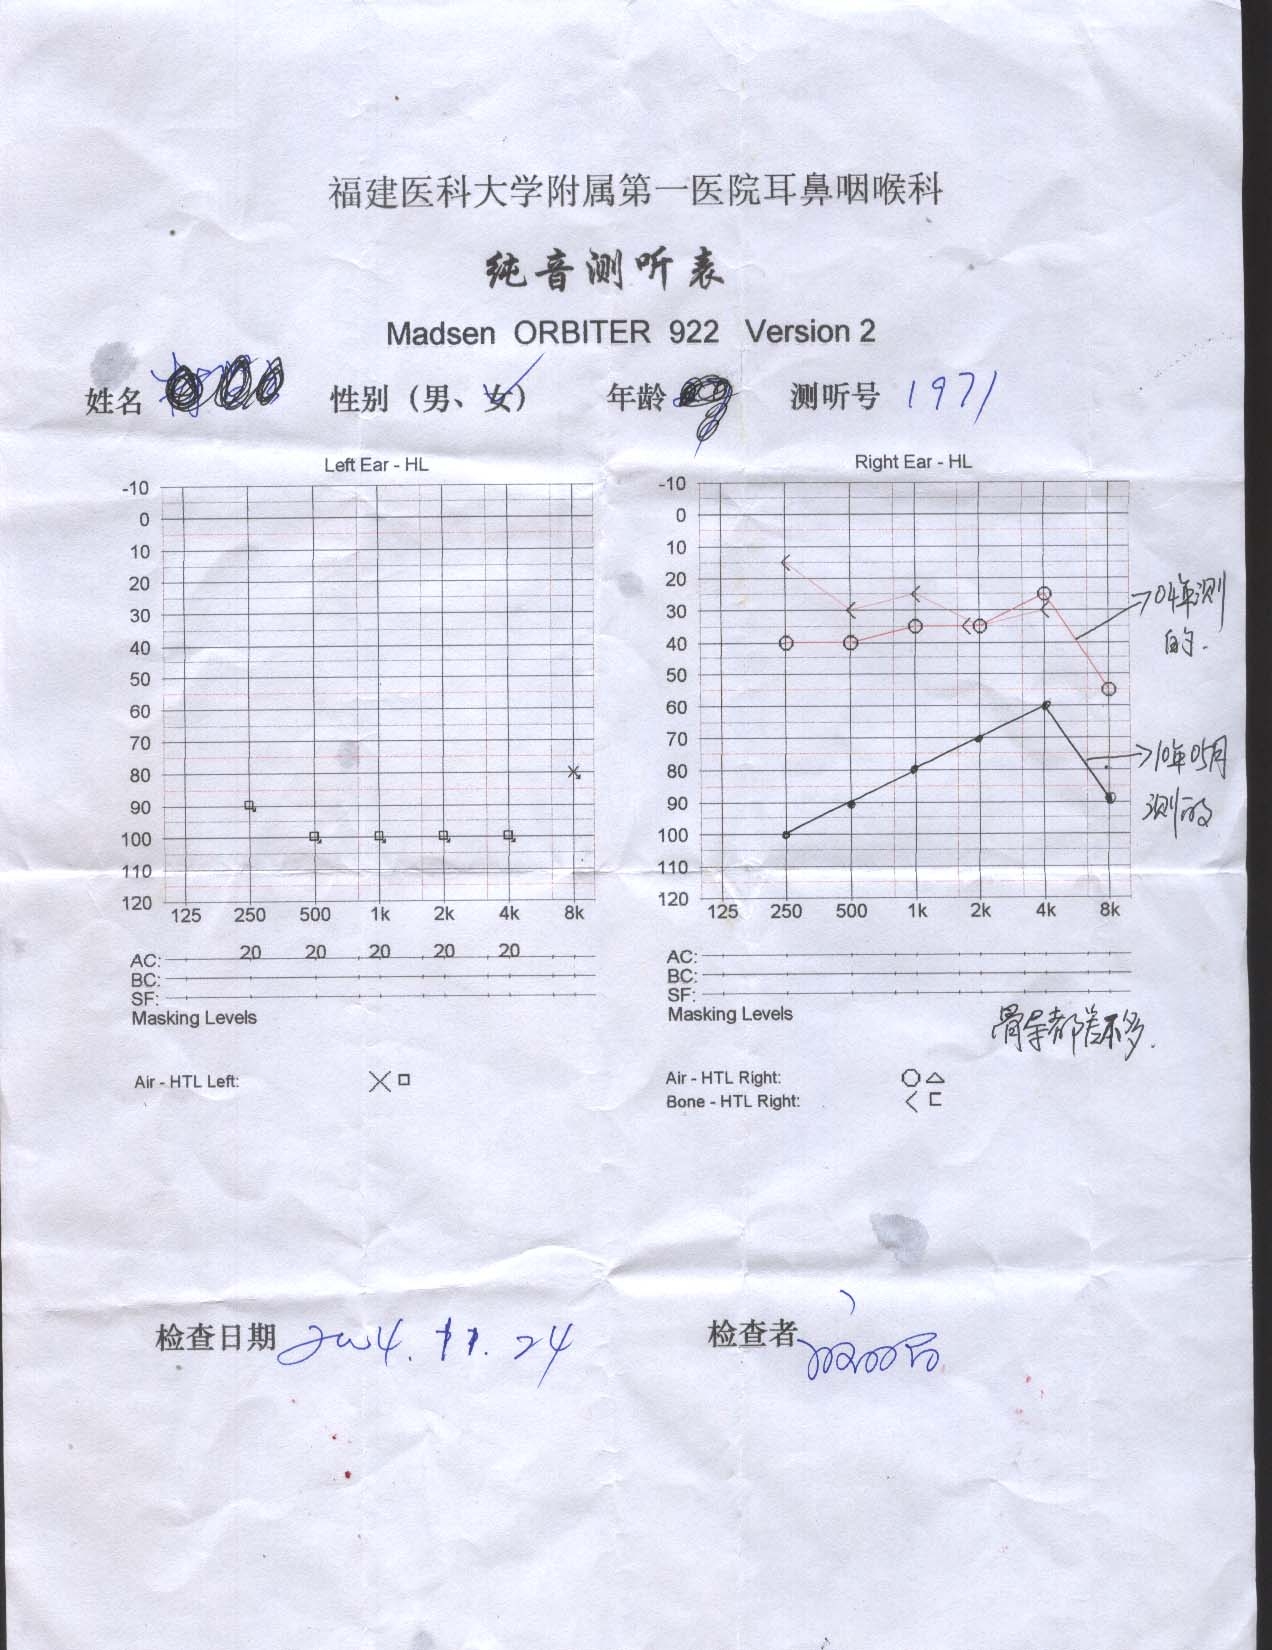 福建医科大学附属第一医院耳鼻咽喉科
纯音测听表
Madsen ORBITER 922 Version 2
姓名 性别（男、女） 年龄 测听号 1971
Left Ear - HL
-10
0
10
20
30
40
50
60
70
80
90
100
110
120
125 250 500 1k 2k 4k 8k
20 20 20 20 20
AC:
BC:
SF:
Masking Levels
Air - HTL Left:
Right Ear - HL
-10
0
10
20
30
40
50
60
70
80
90
100
110
120
125 250 500 1k 2k 4k 8k
04年测
的.
10年05月
测的
AC:
BC:
SF:
Masking Levels
骨导都差不多.
Air - HTL Right:
Bone - HTL Right:
检查日期 2004.11.24 检查者